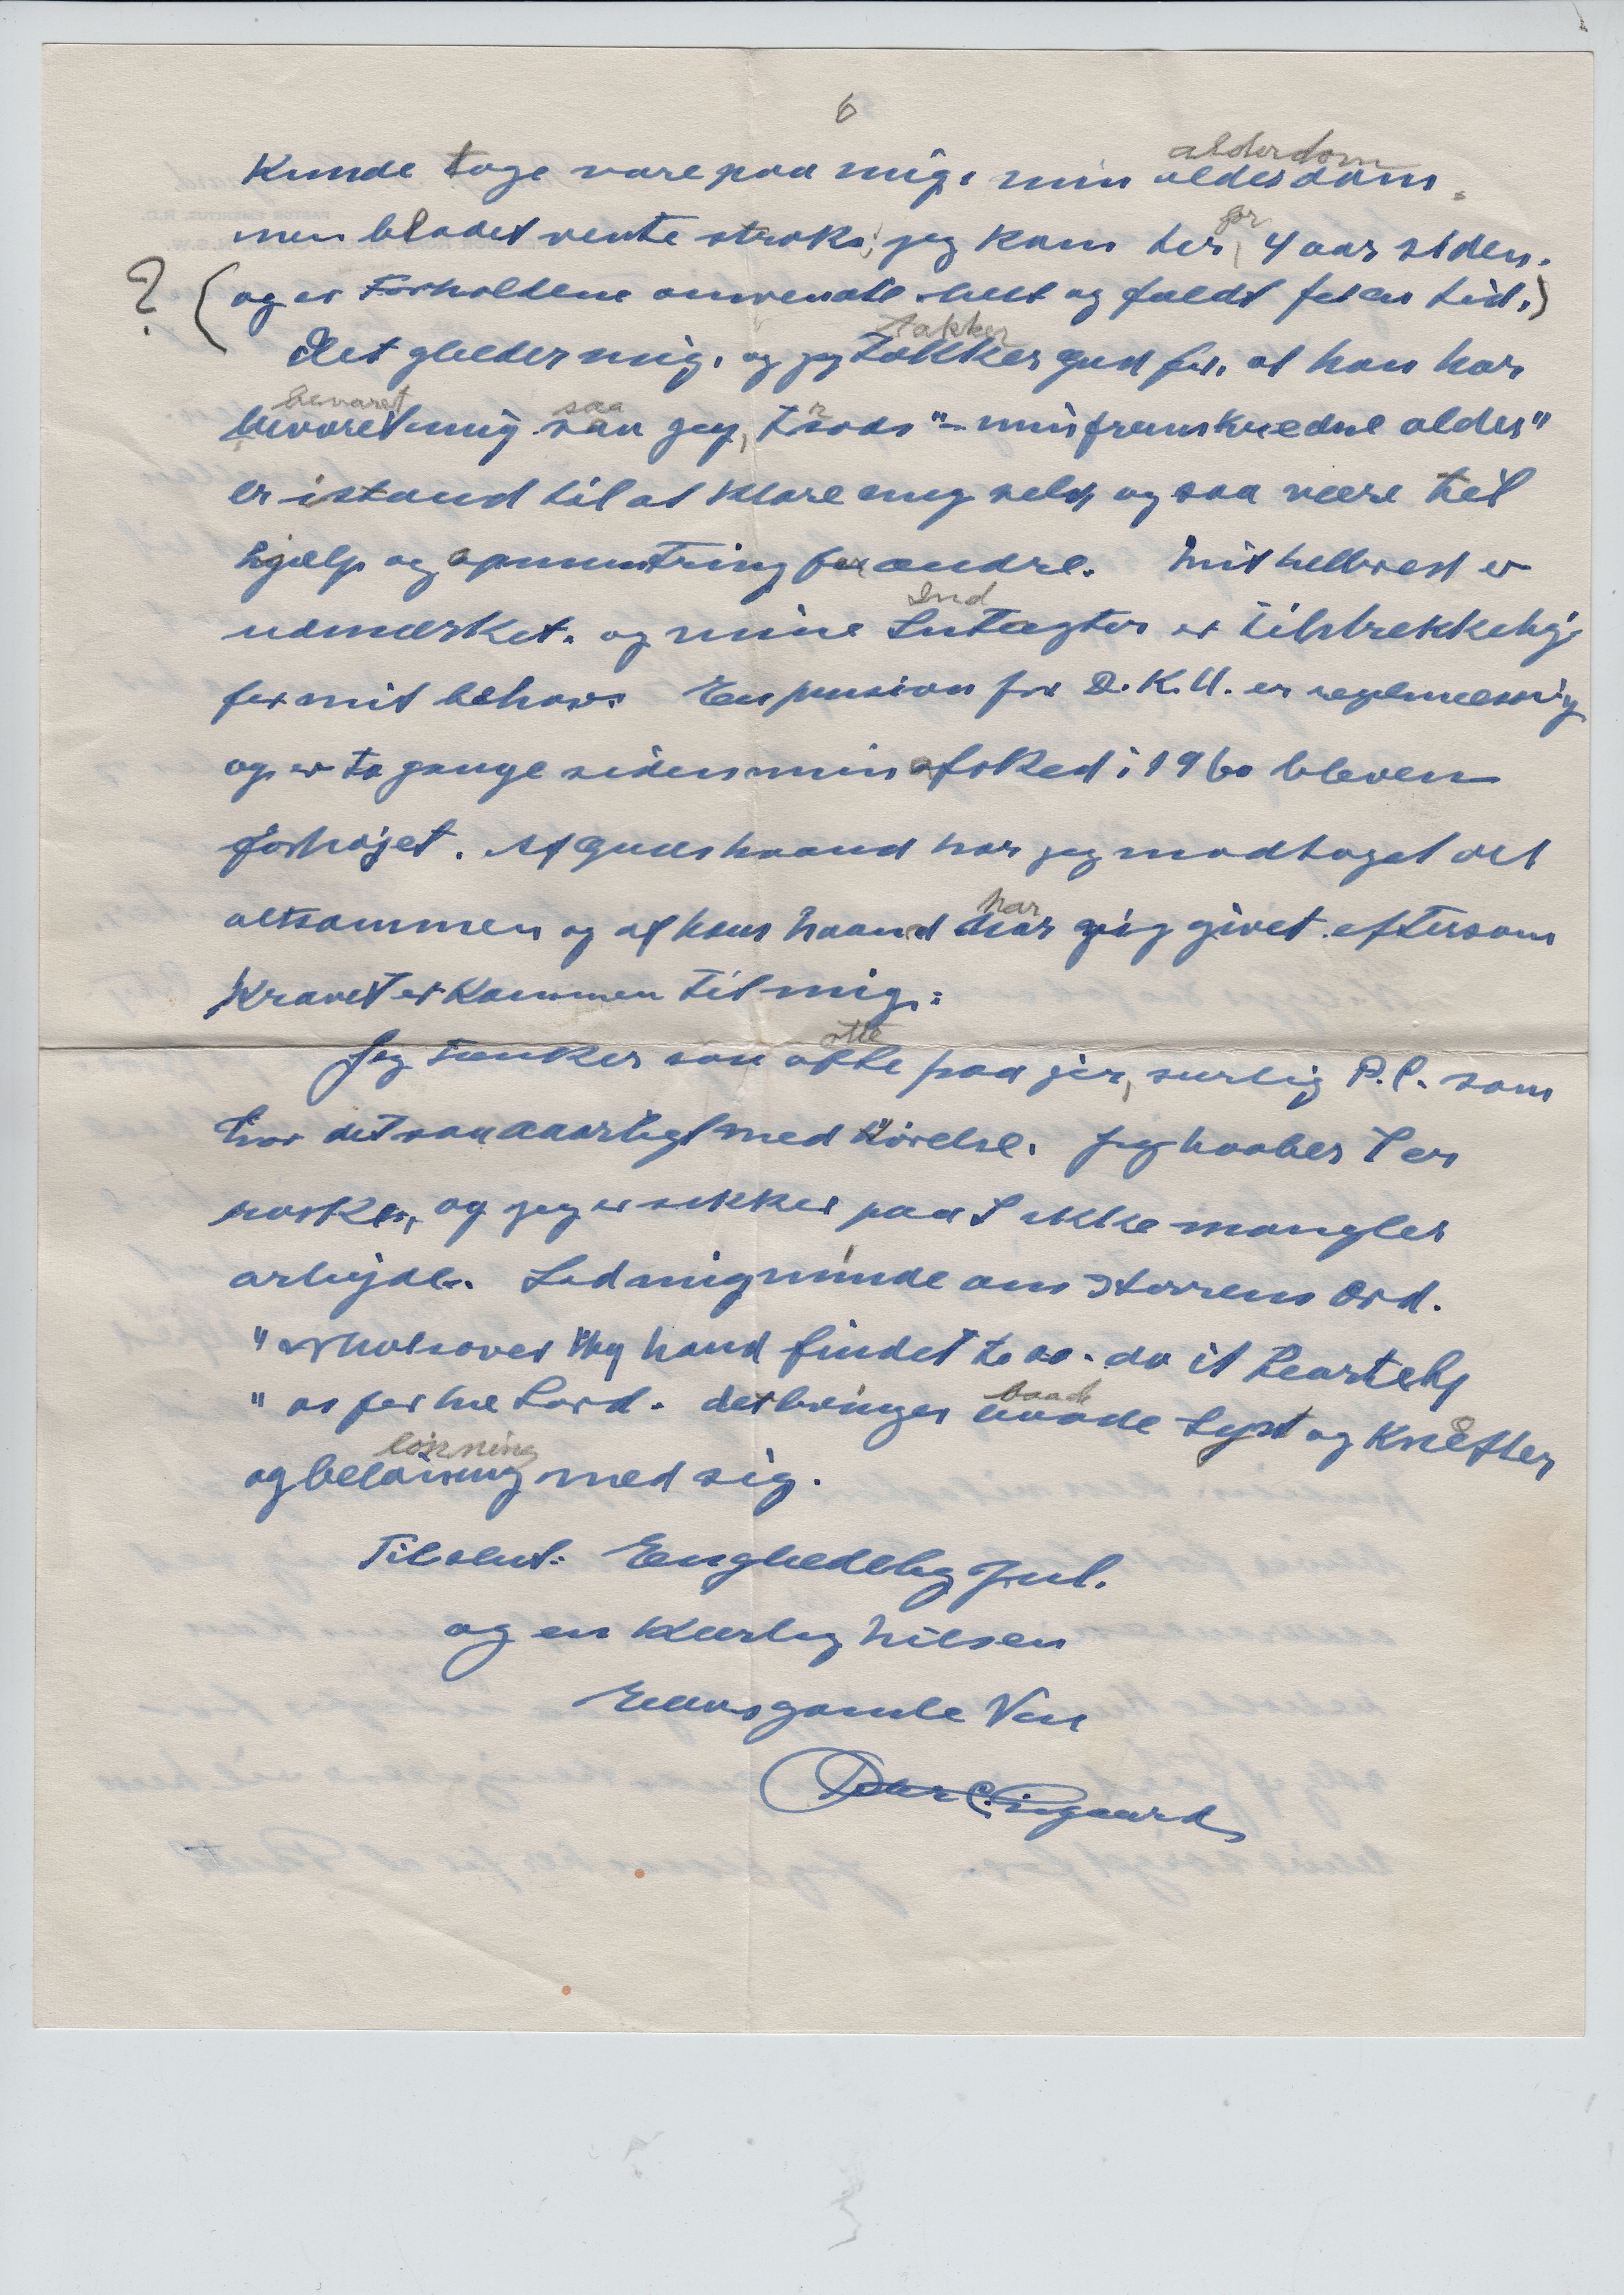 6
alderdom
Kunde tage vare paa mig i min alderdom.
for
men bladet vente straks; jeg kom her 4 aar siden.
? (og er Forholdene omvendt helt og fuldt for en tid.)
takker
Det glæder mig, og jeg takker Gud for, at han har
bevaret saa
bevaret mig saa jeg, trods "min fremskredne alder"
er istand til at klare mig selv og saa være til
hjælp og opmuntring for andre. Mit helbred er
Ind
udmærket. og mine Indtægter er tilstrekkelig
for mit behov. En pension fra D.K.U. er regelmæssig
og er to gange siden min afsked i 1960 bleven
forhøjet. Af Guds haand har jeg modtaget det
har
altsammen og af hans haand har jeg givet eftersom
Kravet er kommen til mig.
otte
Jeg tænker saa ofte paa jer, særlig P.C. som
har det saa daarligt med Hørelse. Jeg haaber I er
raske, og jeg er sikker paa I ikke mangler
arbejde. Lad mig minde om Herrens Ord.
"Whatsoever thy hand findet to do. do it heartely
" as for the Lord. det bringer
baade
baade Lyst og Kræfter
lønning
og beløning med sig.
Tilslut: En glædelig Jul.
og en Kærlig hilsen
Eders gamle Ven
Peter C. Ligaard